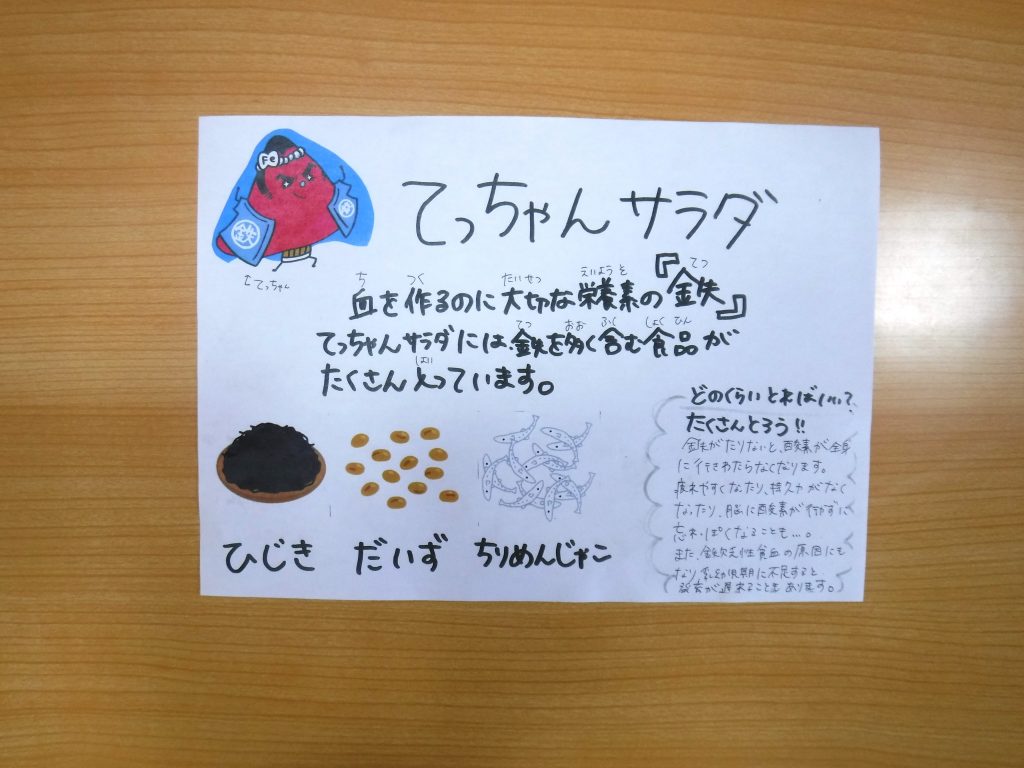 てっちゃんサラダ
Fe
鉄
てっちゃん
ち つく たいせつ えいようそ てつ
血を作るのに大切な栄養素の『鉄』
てつ おお ふく しょくひん
てっちゃんサラダには鉄を多く含む食品が
はい
たくさん入っています。
ひじき だいず ちりめんじゃこ
どのくらいとればいい?
たくさんとろう!!
鉄がたりないと、酸素が全身
に行きわたらなくなります。
疲れやすくなったり、持久力がなく
なったり、脳に酸素が行かずに
忘れっぽくなることも…。
また、鉄欠乏性貧血の原因にも
なり、乳幼児期に不足すると
発育が遅れることもあります。